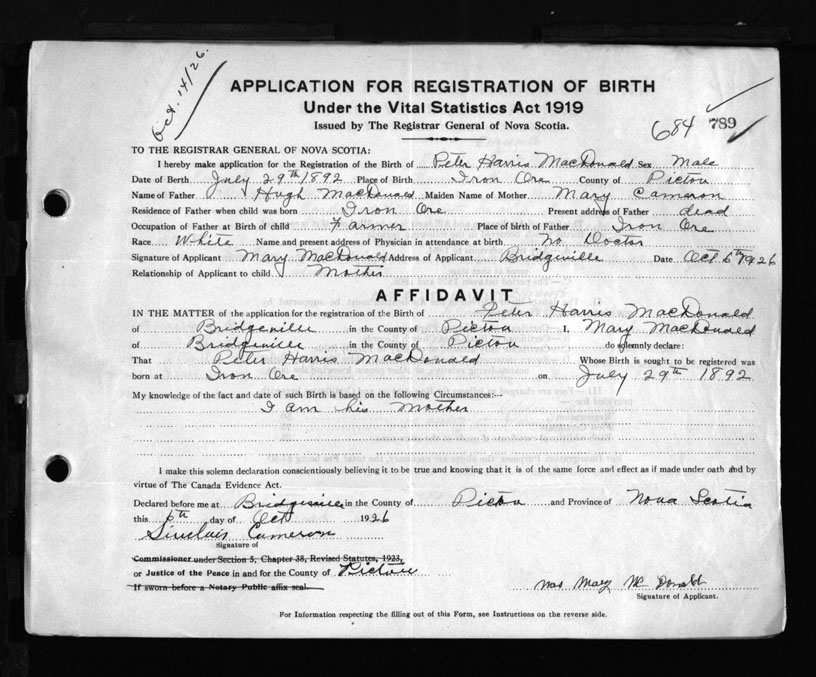 Oct. 14/26.
APPLICATION FOR REGISTRATION OF BIRTH
Under the Vital Statistics Act 1919
Issued by The Registrar General of Nova Scotia.
684 789
TO THE REGISTRAR GENERAL OF NOVA SCOTIA:
I hereby make application for the Registration of the Birth of Peter Harris MacDonald Sex Male
Date of Birth July 29th 1892 Place of Birth Iron Ore County of Pictou
Name of Father Hugh MacDonald Maiden Name of Mother Mary Cameron
Residence of Father when child was born Iron Ore Present address of Father dead
Occupation of Father at Birth of child Farmer Place of birth of Father Iron Ore
Race White Name and present address of Physician in attendance at birth No Doctor
Signature of Applicant Mary MacDonald Address of Applicant Bridgeville Date Oct 6th 1926
Relationship of Applicant to child Mother
AFFIDAVIT
IN THE MATTER of the application for the registration of Birth of Peter Harris MacDonald
of Bridgeville in the County of Pictou I, Mary MacDonald
of Bridgeville in the County of Pictou do solemnly declare:
That Peter Harris MacDonald Whose Birth is sought to be registered was
born at Iron Ore on July 29th 1892
My knowledge of the fact and date of such Birth is based on the following Circumstances:—
I am his Mother
I make this solemn declaration conscientiously believing it to be true and knowing that it is of the same force and effect as if made under oath and by
virtue of The Canada Evidence Act.
Declared before me at Bridgeville in the County of Pictou and Province of Nova Scotia
this 6th day of Oct 1926
Sinclair Cameron
Signature of
Commissioner under Section 5, Chapter 38, Revised Statutes, 1923,
or Justice of the Peace in and for the County of Pictou
If sworn before a Notary Public affix seal.
Mrs Mary McDonald
Signature of Applicant.
For Information respecting the filling out of this Form, see Instructions on the reverse side.